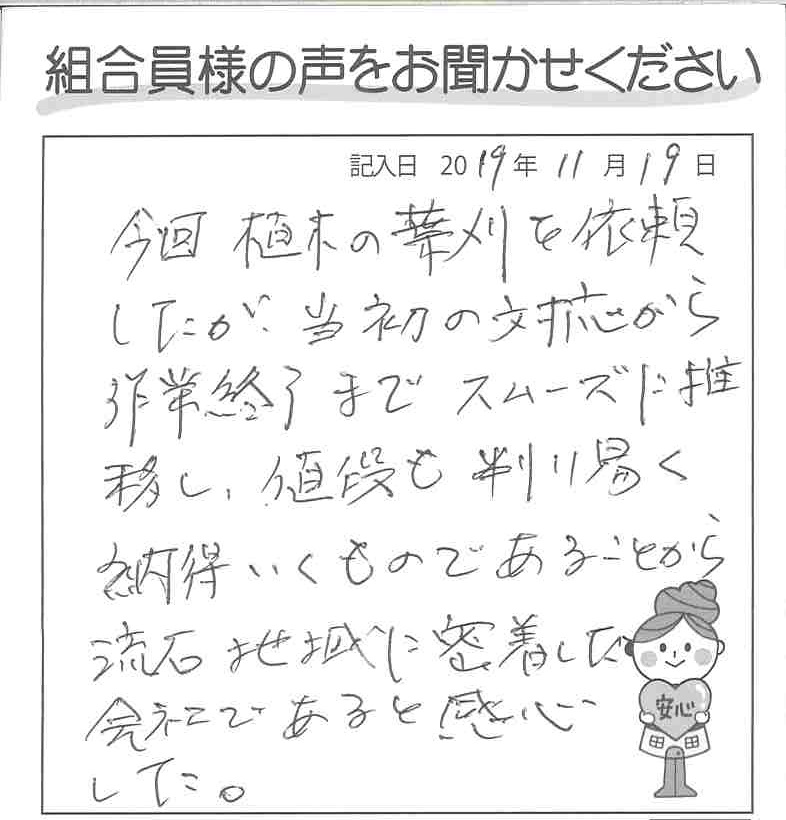 組合員様の声をお聞かせください
記入日 2019年 11月 19日
今回 植木の葉刈を依頼
したが、当初の対応から
作業終了まで スムーズに推
移し、値段も 判り易く
納得いくものであることから
流石 地域に密着した
会社であると感心
した。
安心